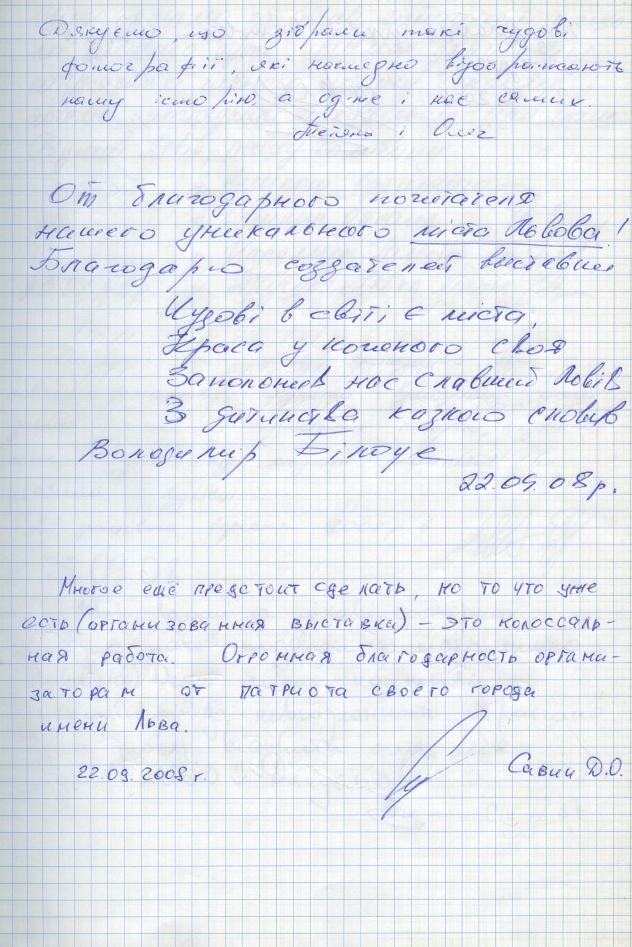 Дякуємо, що зібрали такі чудові
фотографії, які наглядно відображають
нашу історію, а отже і нас самих.
Тетяна і Олег
От благодарного почитателя
нашего уникального міста Львова!
Благодарю создателей выставки
Чудові в світі є міста,
Краса у кожного своя
Заполонив нас славний Львів
З дитинства казкою сповив
Володимир Білоус
22.09.08р.
Многое ещё предстоит сделать, но то что уже
есть (организованная выставка) – это колоссаль-
ная работа. Огромная благодарность органи-
заторам от патриота своего города
имени Льва.
22.09.2008 г.
Савин Д.О.